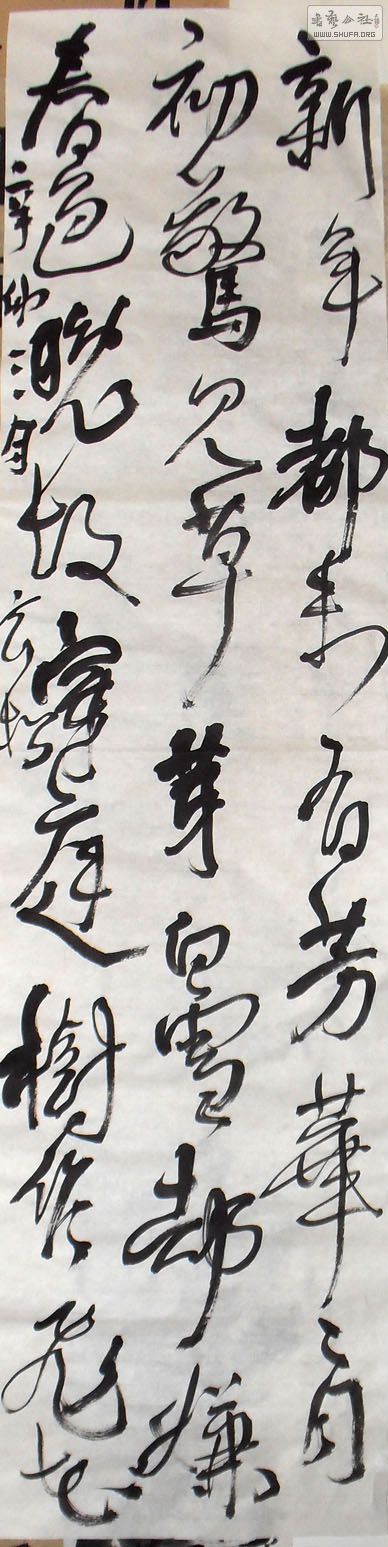 書藝公社
WWW.SHUFA.ORG
新年都未有芳華二月
初驚見草芽白雪却嫌
春色晚故穿庭樹作飛花
辛卯三月